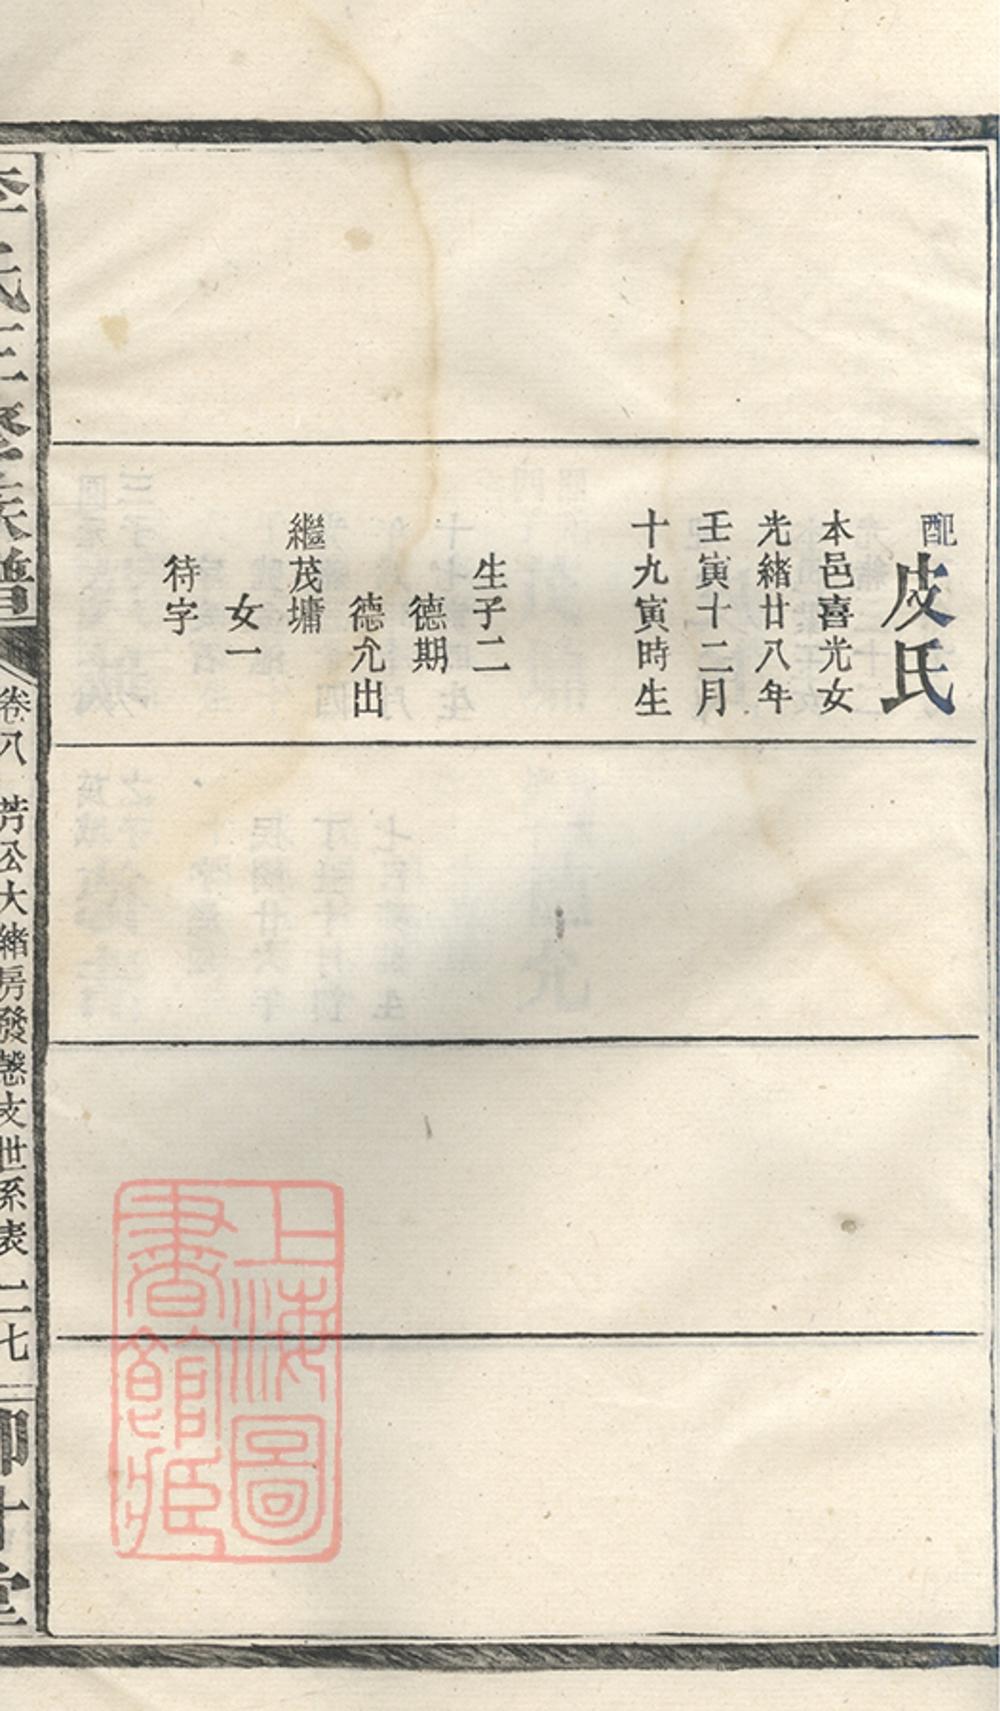 配皮氏
本邑喜光女
光緒廿八年
壬寅十二月
十九寅時生
生子二
德期
德允出
繼茂墉
女一
待字
李氏三修族譜
卷八 芳公大緒房發慤支世系表 二七
上海圖
書館藏